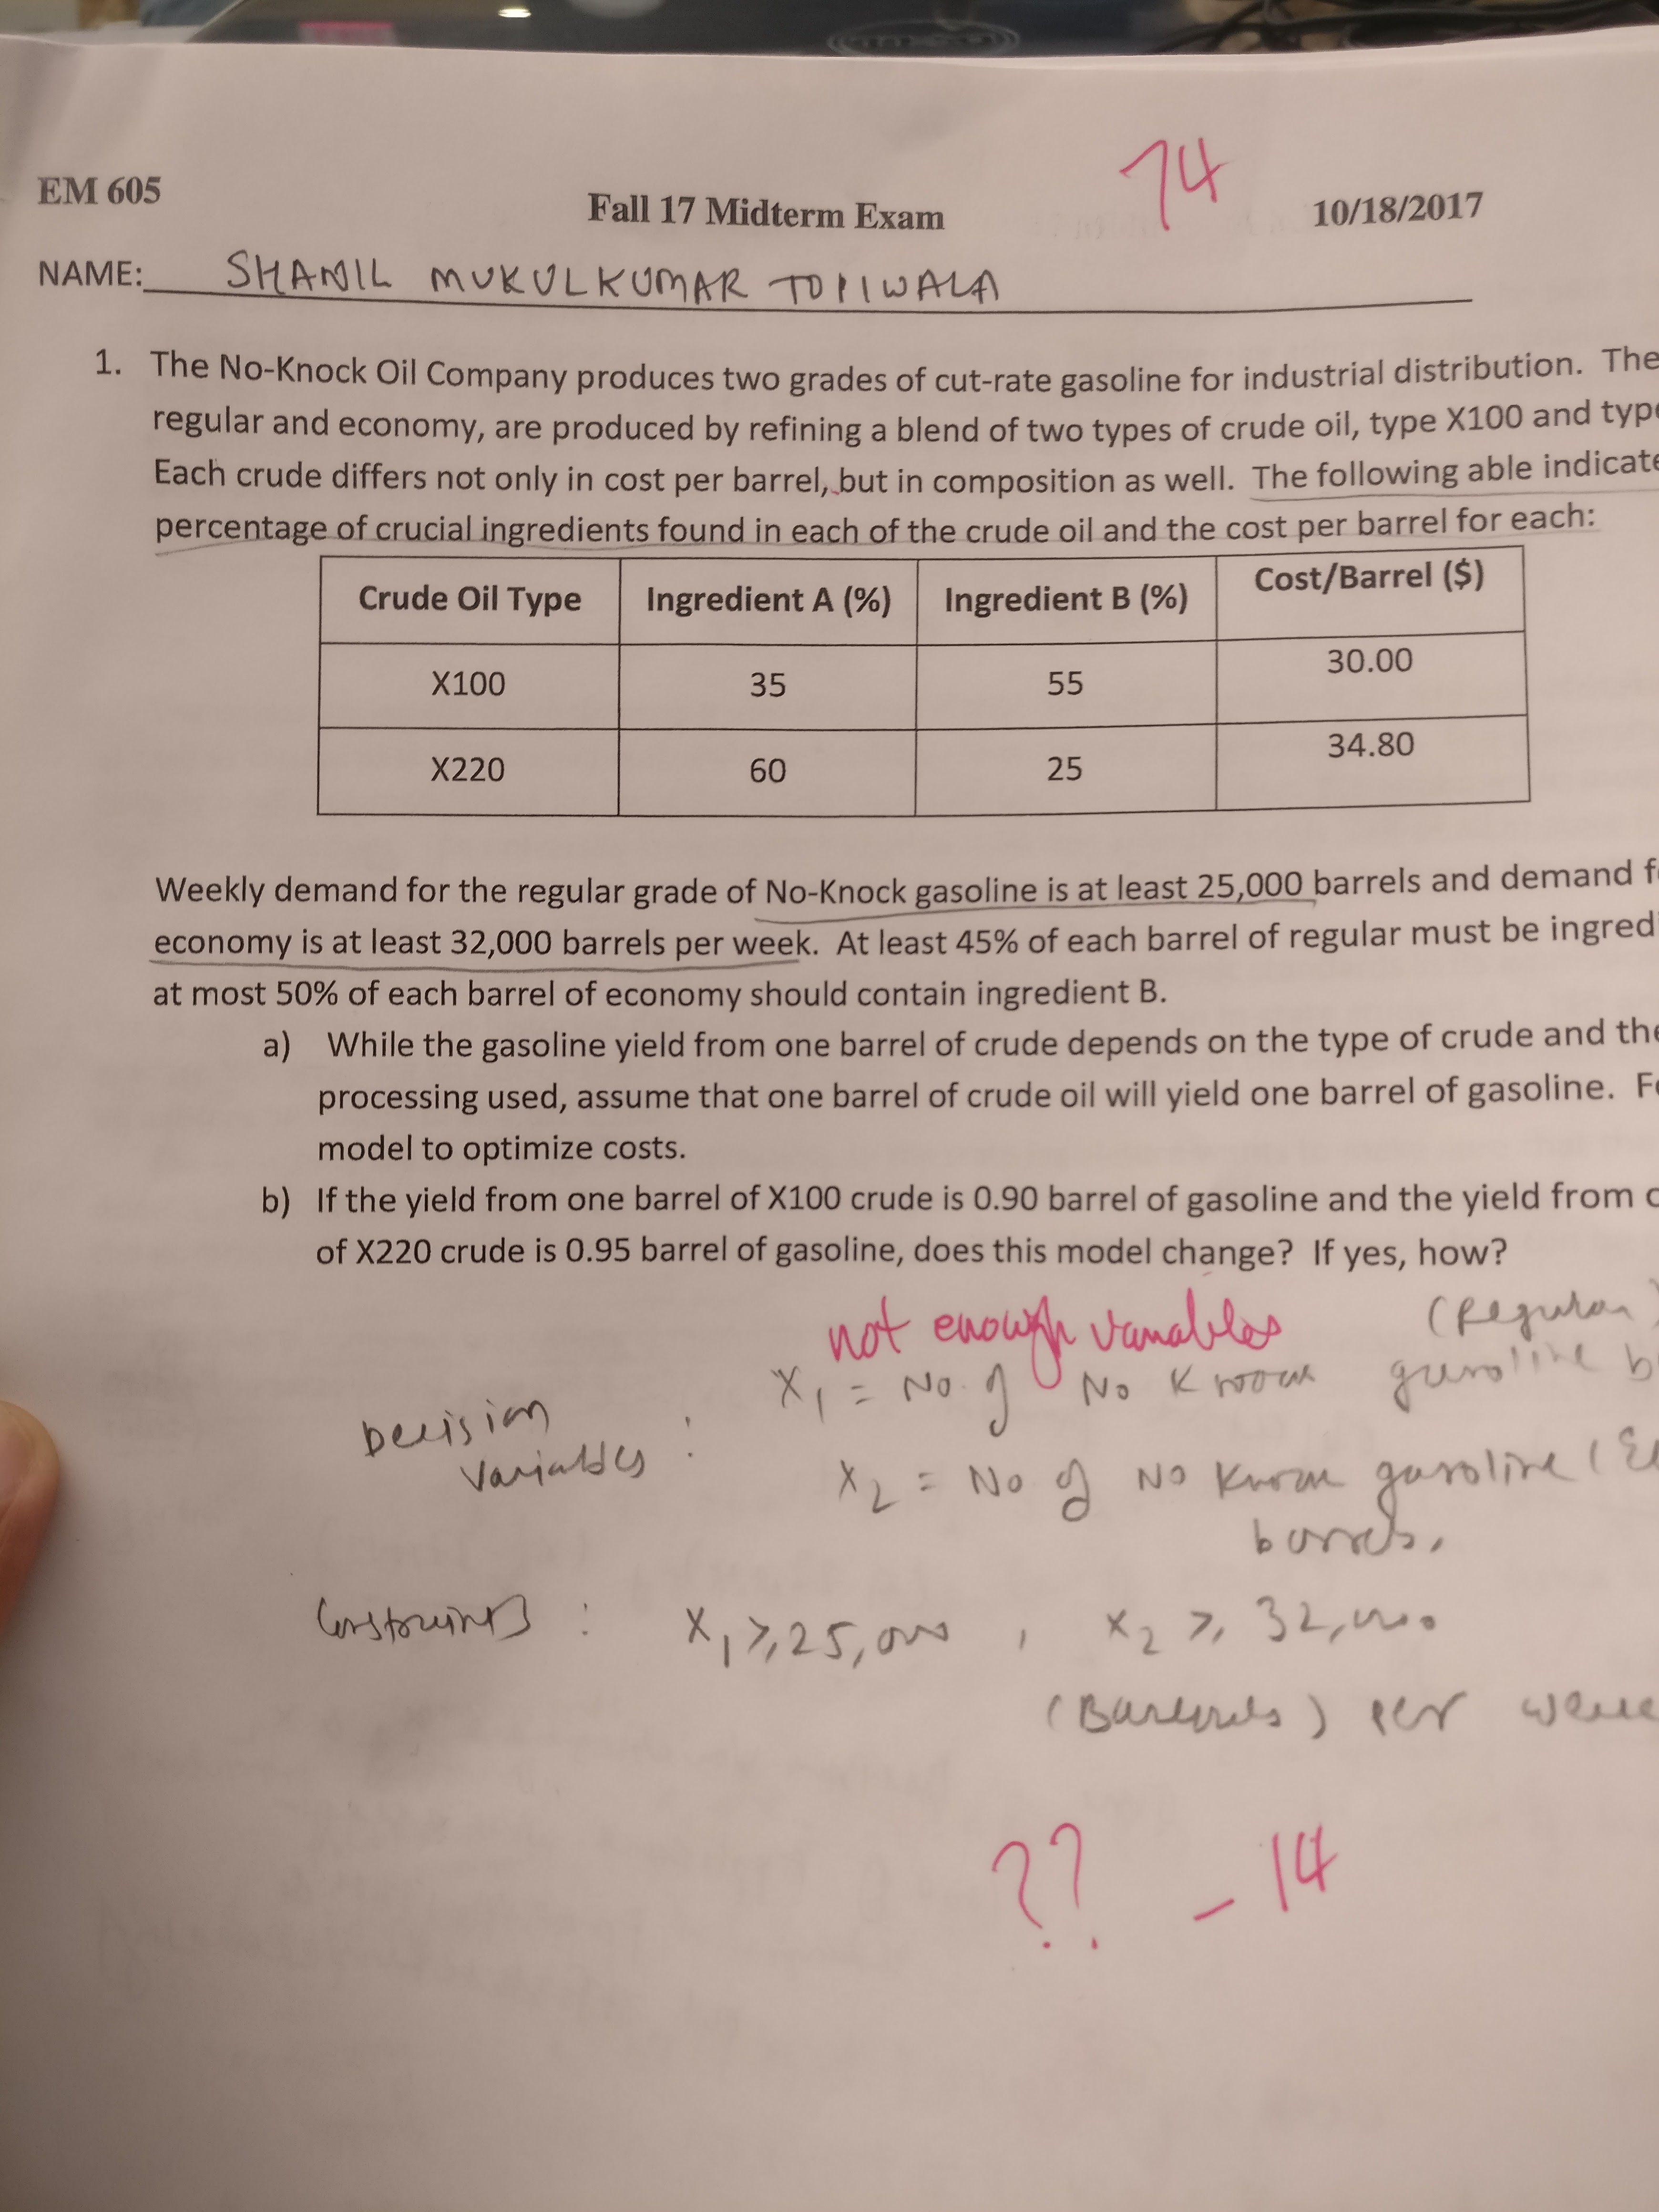 74
EM 605 Fall 17 Midterm Exam 10/18/2017
NAME: SHANIL MUKULKUMAR TOPIWALA
1. The No-Knock Oil Company produces two grades of cut-rate gasoline for industrial distribution. The
regular and economy, are produced by refining a blend of two types of crude oil, type X100 and
Each crude differs not only in cost per barrel, but in composition as well. The following able
percentage of crucial ingredients found in each of the crude oil and the cost per barrel for each:
Crude Oil Type Ingredient A (%) Ingredient B (%) Cost/Barrel ($)
X100 35 55 30.00
X220 60 25 34.80
Weekly demand for the regular grade of No-Knock gasoline is at least 25,000 barrels and demand
economy is at least 32,000 barrels per week. At least 45% of each barrel of regular must be
at most 50% of each barrel of economy should contain ingredient B.
a) While the gasoline yield from one barrel of crude depends on the type of crude and
processing used, assume that one barrel of crude oil will yield one barrel of gasoline.
model to optimize costs.
b) If the yield from one barrel of X100 crude is 0.90 barrel of gasoline and the yield from
of X220 crude is 0.95 barrel of gasoline, does this model change? If yes, how?
not enough variables
(Regular)
Decision variables : X1 = No. of No gasoline
X2 = No of No gasoline
barrels.
Constraints : X1 ≥ 25,000 , X2 ≥ 32,000
(Barrels) per
?? - 14